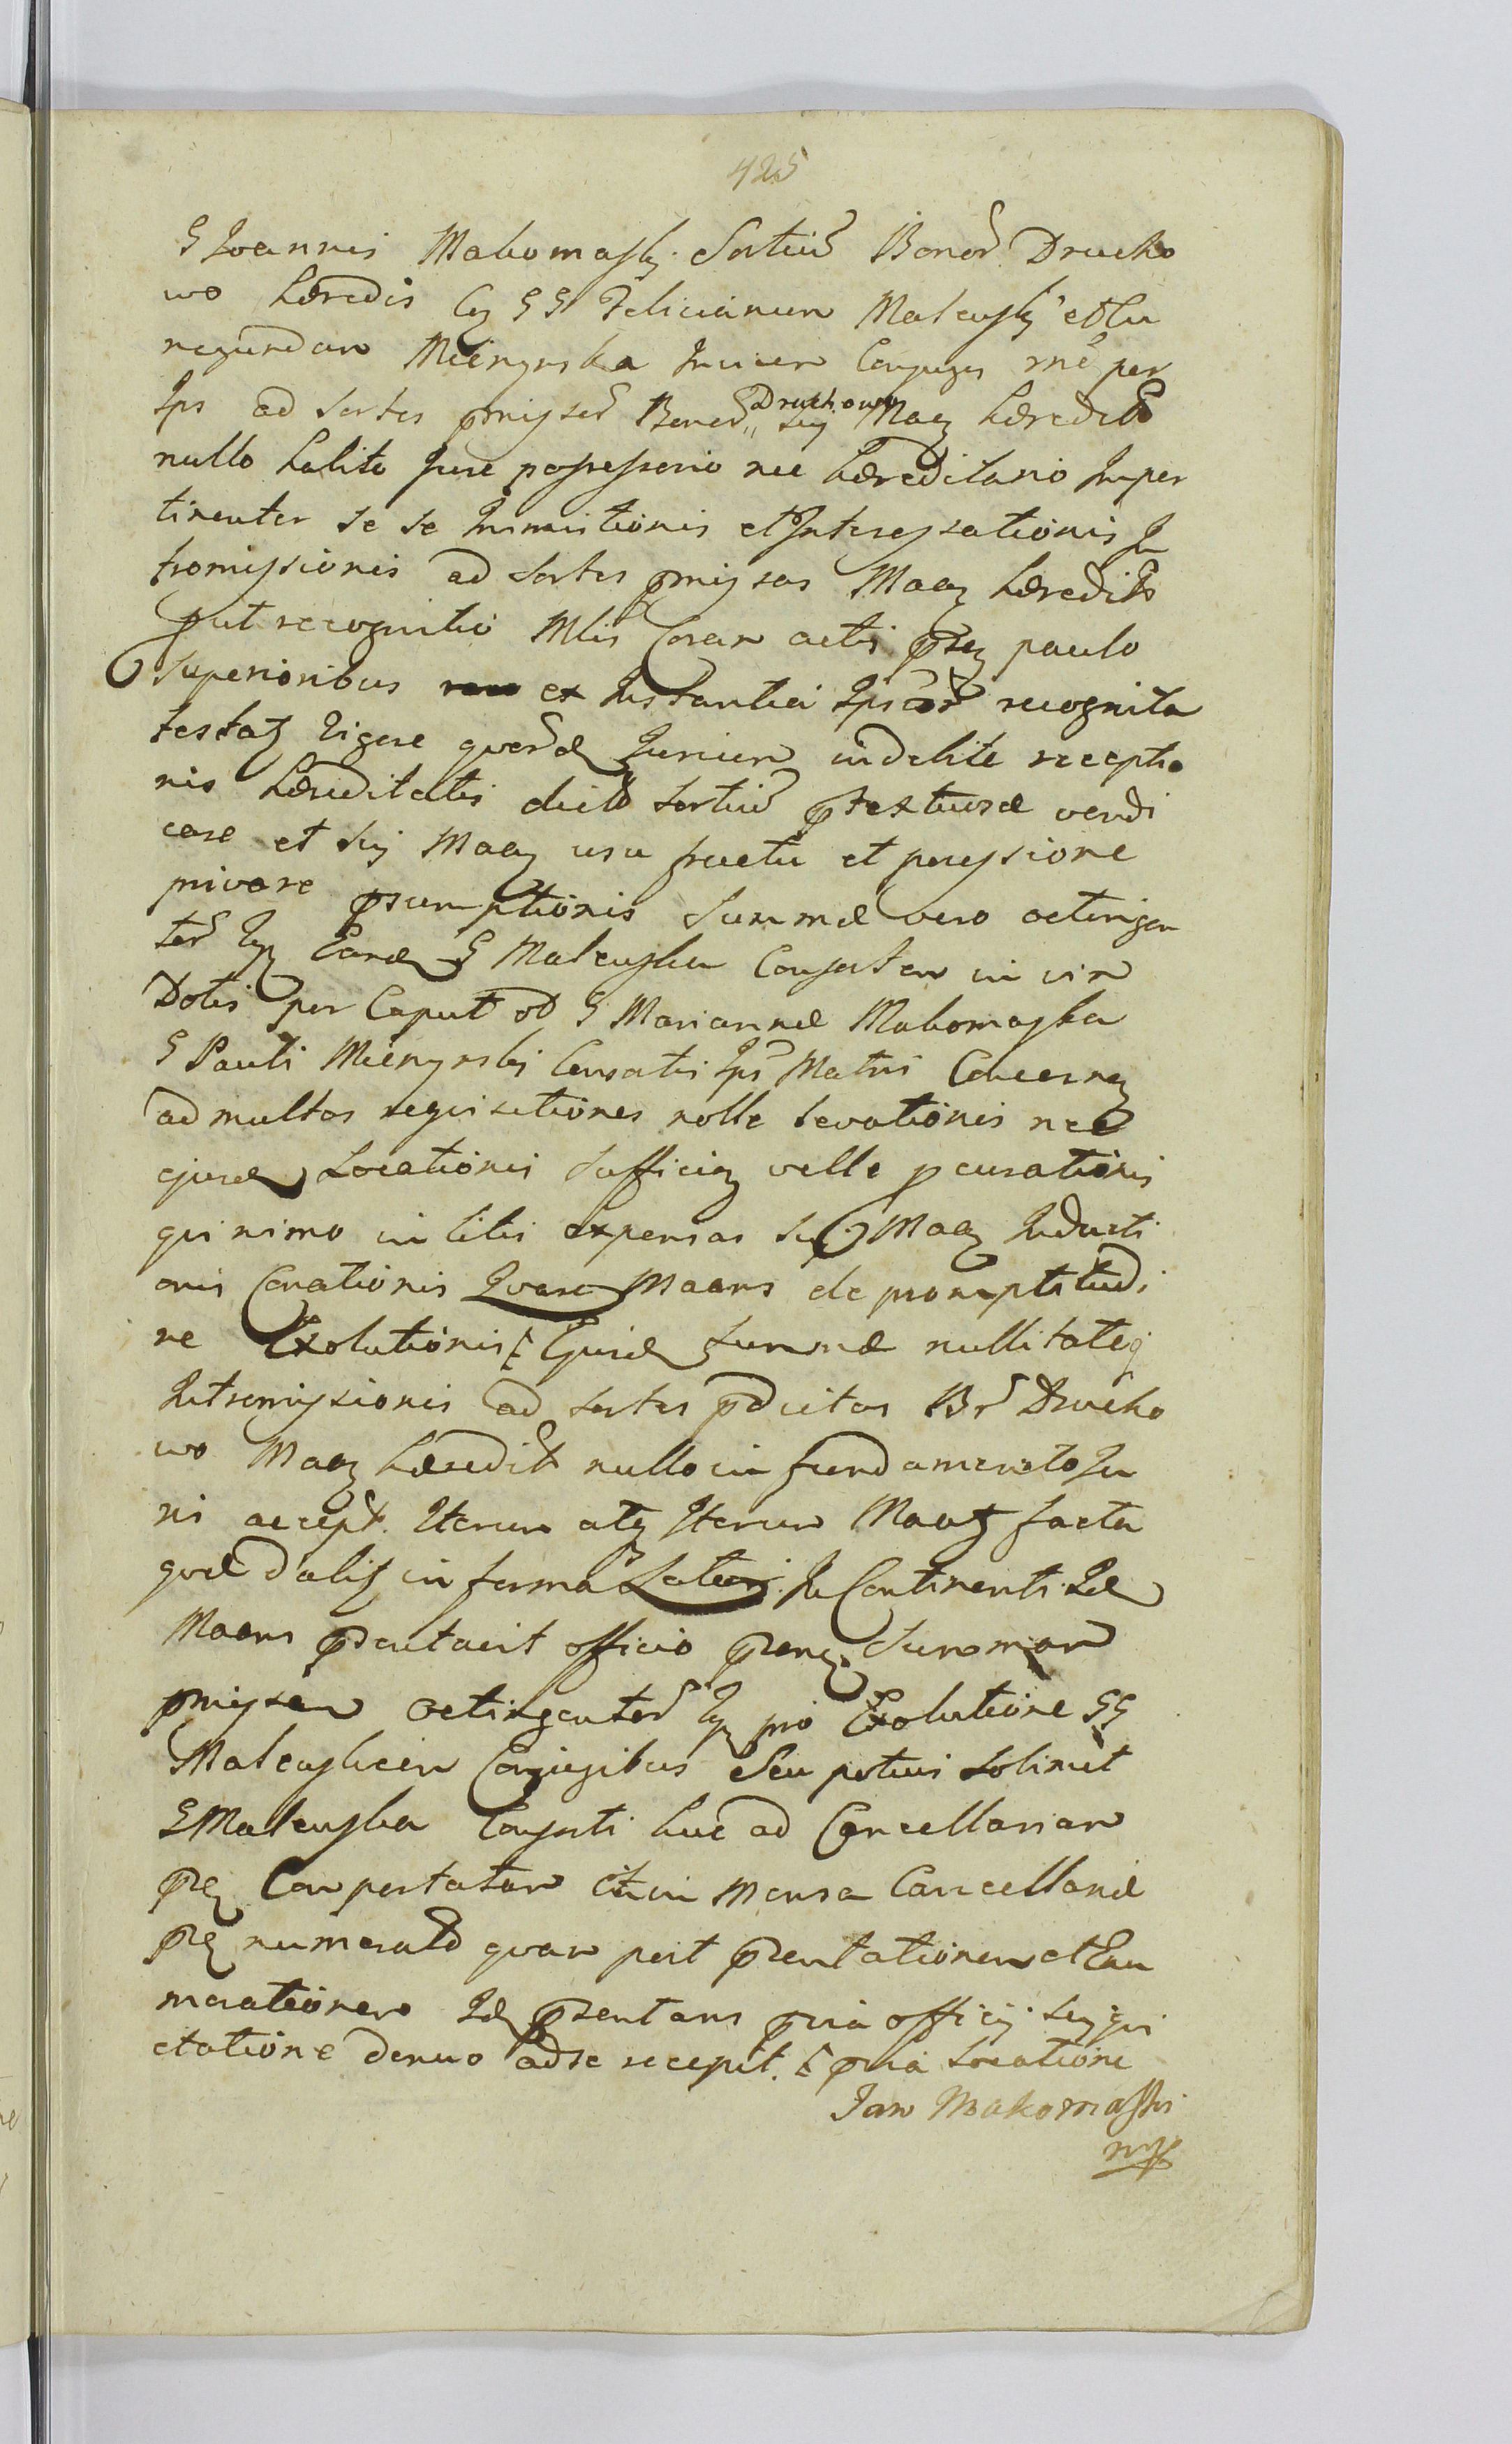 425
G Joannis Makomasky Sortiu Bonor Drucho
wo hæredis Cj GG Felicianum Maleusky et Cu
negundam Mienynska Invicem Conjuges rne per
Ips ad Sortes pmissar Bonor Druchowo Suj Maaz hæredit
nullo habito Jure possessorio nec hæreditario Imper
tinenter se se Inmistionis et Interessationis In
tromissionis ad Sortes pmissas Maaz hæredits
put recognitio Mlis Coram actis psez paulo
superioribus ex Instantia Ipsor recognita
testatz Vigore quorda Jurium indebite receptio
nis hæreditatis dictar Sortiu ptextuosæ vendi
care et Suj Maaz usu fructu et possessione
privare psumptionis Summæ vero octingen
tor Eand G Maleuska Consortem in vim
Dotis per Caput od G Mariannæ Makomaska
G Pauli Mienynski Consortis Ips Matris Concernez
ad multas requisitiones nolle levationis nec
ejusd Locationis Sufficiez velle pcurationis
quinimo in litis expensas Suj Maaz Inducti
onis Conationis Quare Maans de promptitudi
ne Exolutionis Ejusd Summæ nullitateq
Intromissionis ad Sortes pdictas Br Drucho
wo Maaz hæredit nullo in fundamento Ju
ris accept. Iterum atq Iterum Maatz facta
quæ d aliz in forma Latiori. In Continenti Id
Maans psentavit officio psenz. Summam
pmissam octingentor pro Exolutione GG
Maleuskiem Conjugibus Seu potius Solimet
G Maleuska Consorti huc ad Cancellariam
psez Comportatam et in mensa Cancellariæ
psez numerata quam post psentationem et Enu
merationem Id psentans pvia officij Suj qui
etatione denuo ad se recepit. pvia Locatione
Jan Makomaski
mp